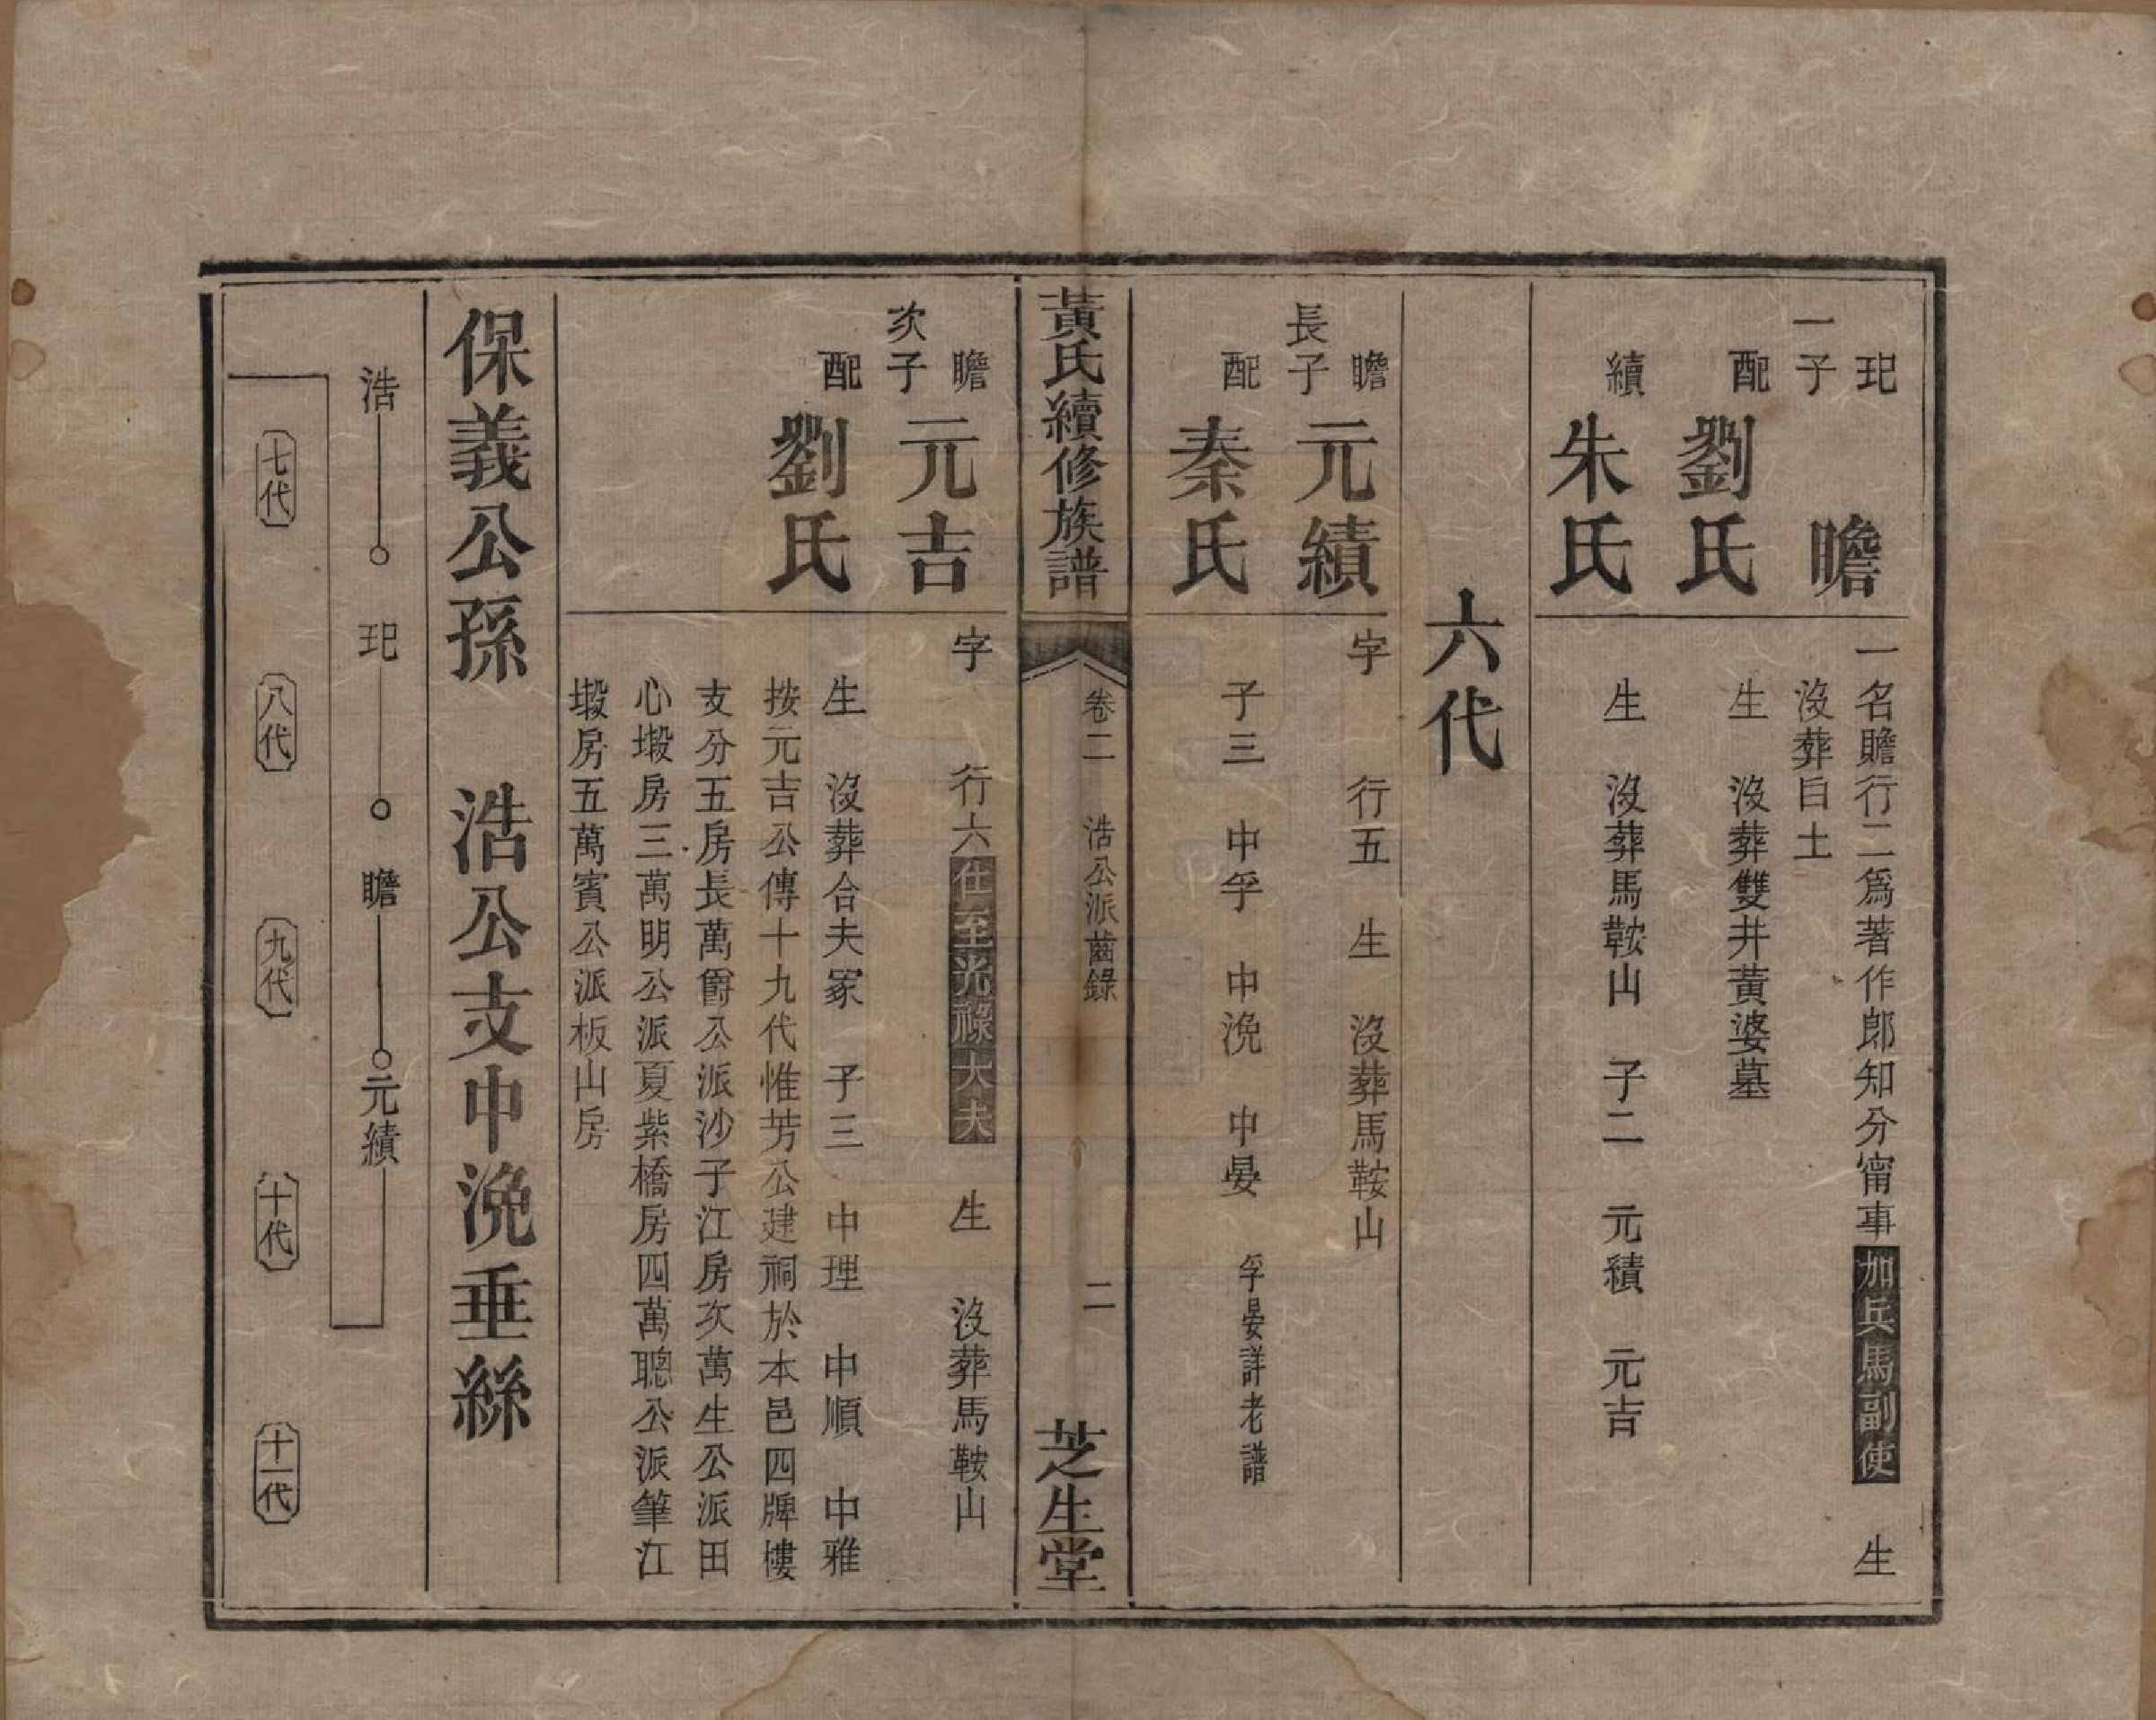 玘
一子
瞻
一名贍行二爲著作郎知分甯事加兵馬副使 生
沒葬自土
配
劉氏
生 沒葬雙井黃婆墓
續
朱氏
生 沒葬馬鞍山 子二 元績 元吉
六代
瞻
長子
元績
字 行五 生 沒葬馬鞍山
配
秦氏
子三 中孚 中浼 中晏 孚晏詳老譜
黃氏續修族譜
卷二 浩公派齒錄
二
芝生堂
瞻
次子
元吉
字 行六仕至光祿大夫 生 沒葬馬鞍山
配
劉氏
生 沒葬合夫冢 子三 中理 中順 中雅
按元吉公傳十九代惟芳公建祠於本邑四牌樓
支分五房長萬爵公派沙子江房次萬生公派田
心塅房三萬明公派夏紫橋房四萬聰公派筆江
塅房五萬賓公派板山房
保義公孫 浩公支中浼垂絲
浩 玘 瞻 元績
七代 八代 九代 十代 十一代